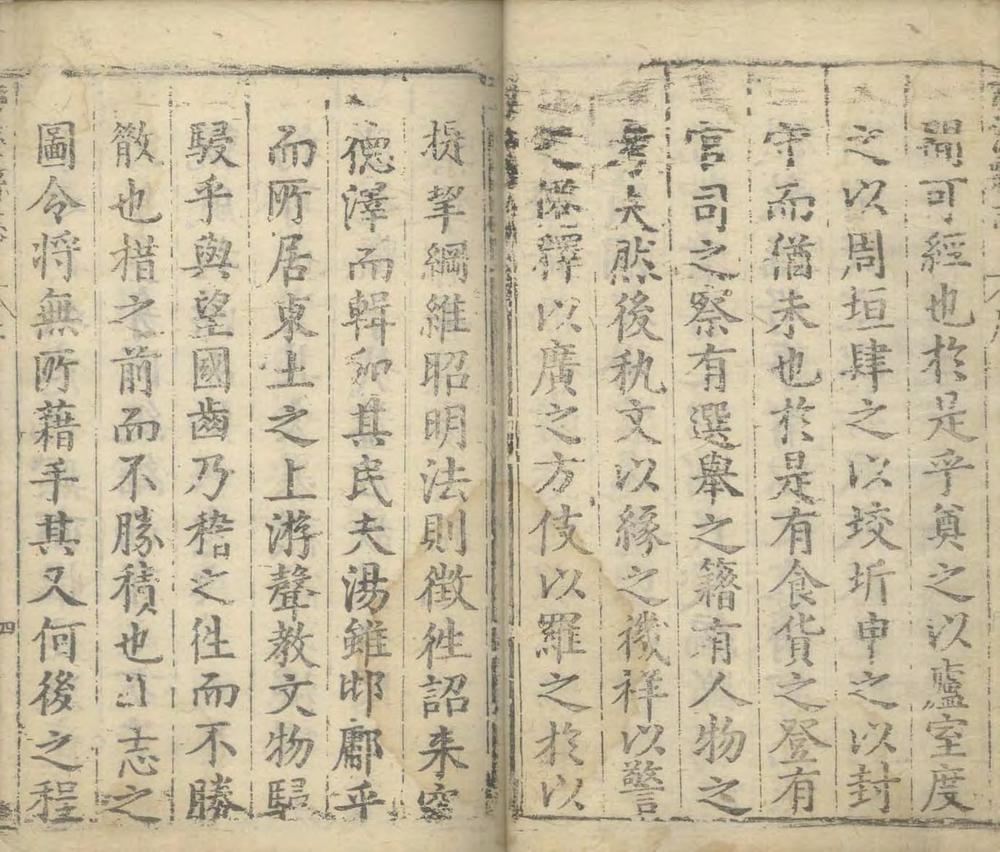 間可經也於是乎奠之以廬室度
之以周垣肆之以坟圻申之以封
守而猶未也於是有食貨之登有
官司之察有選舉之籍有人物之
考夫然後秇文以緣之禨祥以警
之僊釋以廣之方伎以羅之於以
挈綱維昭明法則徴徃詔来
德澤而輯和其民夫湯雖鄁鄘乎
而所居東土之上游聲教文物駸
駸乎與望國齒乃稽之徃而不勝
散也措之前而不勝積也志之
圖令将無所藉手其又何後之程